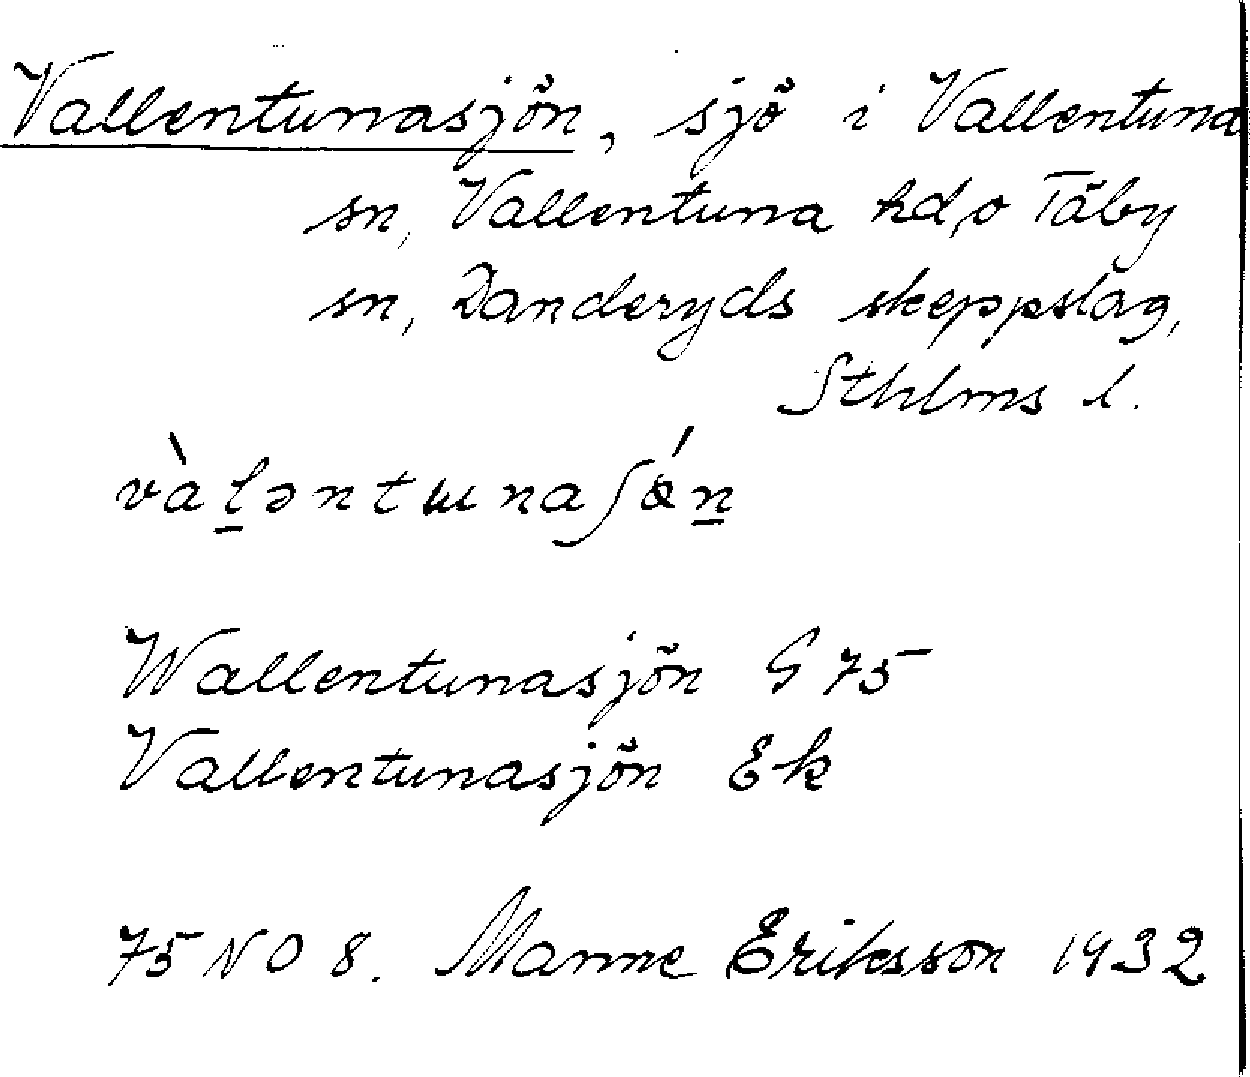 Vallentunasjön, sjö i Vallentuna
sn, Vallentuna hd, o Täby
sn, Danderyds skeppslag,
Sthlms l.
và̀l̠əntɯnaʃǿn̠
Wallentunasjön G 75
Vallentunasjön Ek
75 NO 8. Manne Eriksson 1932